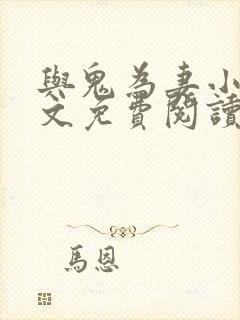 與鬼為妻小
文免費閱讀
馬恩